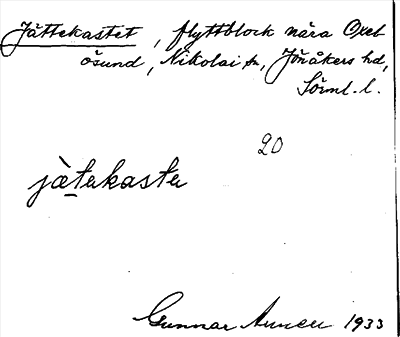 Jättekastet, flyttblock nära Oxel
ösund, Nikolai sn, Jönåkers hd,
Sörml. l.
20
jä̀takasta
Gunnar
1933